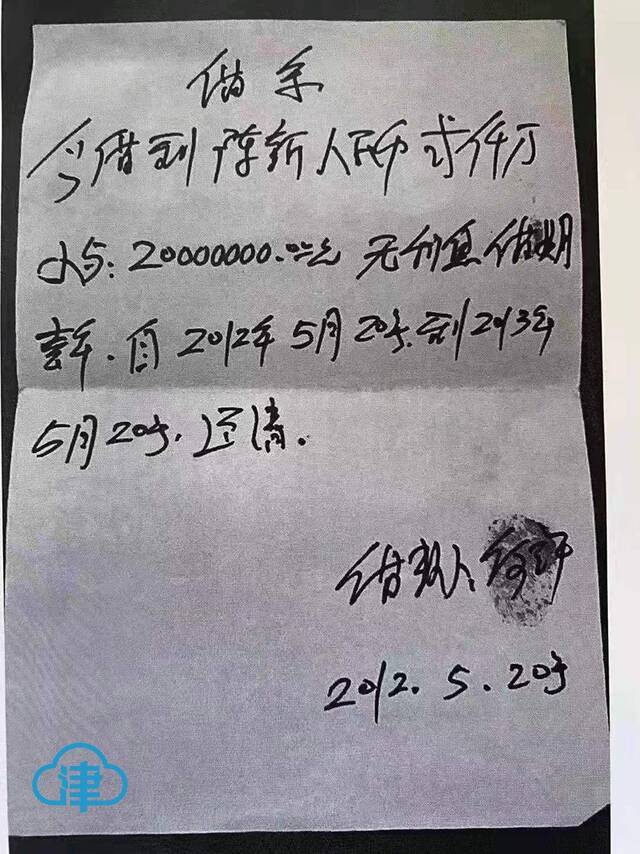 借条
今借到陈新人民币贰仟万
小写：20000000.00元 无利息 借期
壹年.自2012年5月20号.到2013年
5月20号.还清.
借款人
2012.5.20号
津